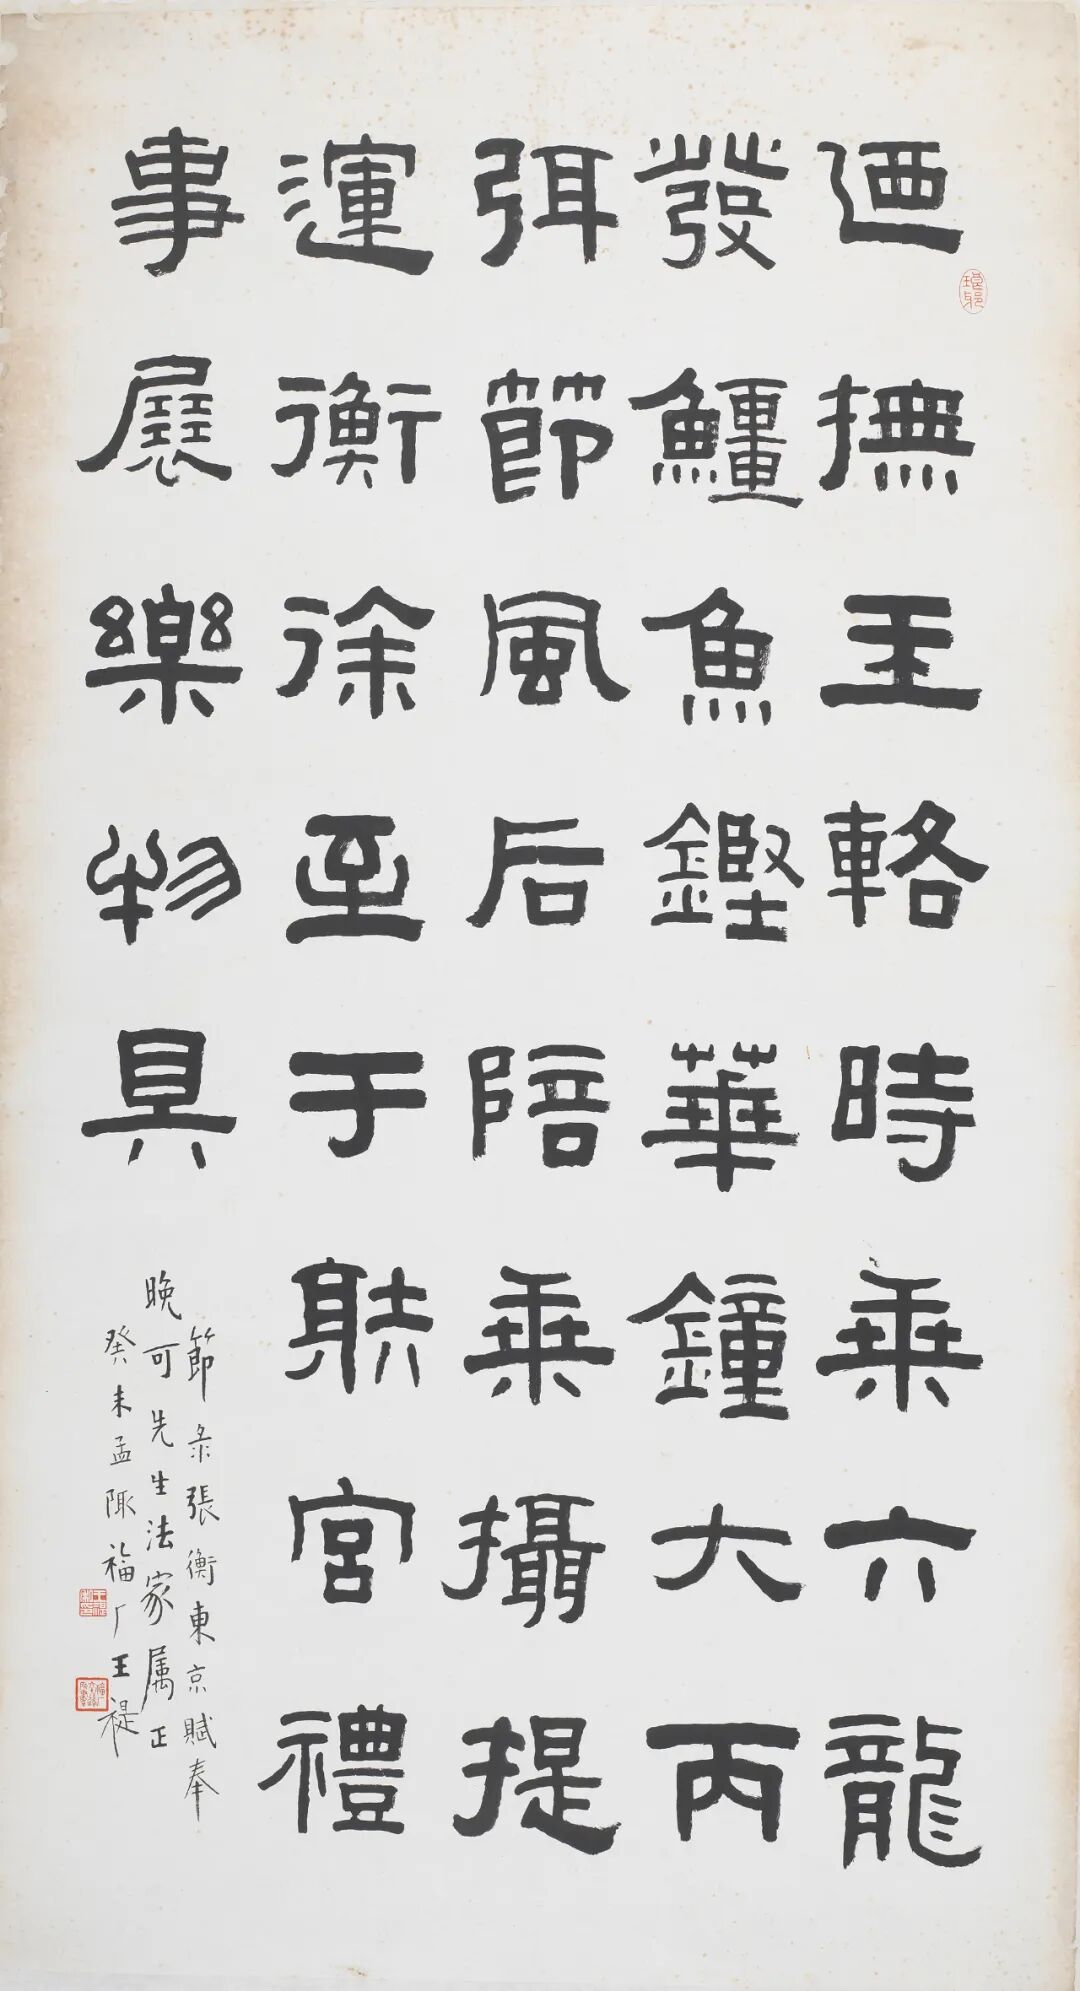 迺撫玉輅時乘六龍
發䲔魚鏗華鐘大丙
弭節風后陪乘攝提
運衡徐至于䠶宮禮
事展樂物具
節彔張衡東京賦奉
晚可先生法家属正
癸未孟陬福厂王禔
琅邪